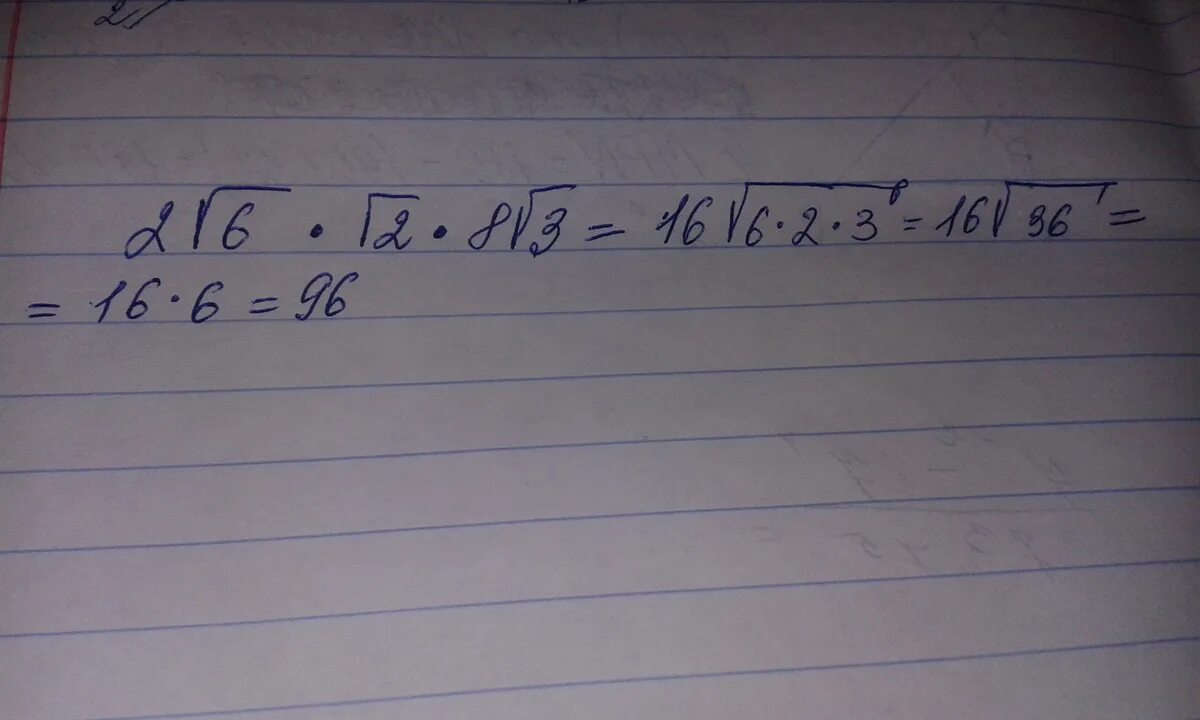 2√6 · √2 · 8√3 = 16√6·2·3 = 16√36 =
= 16·6 = 96